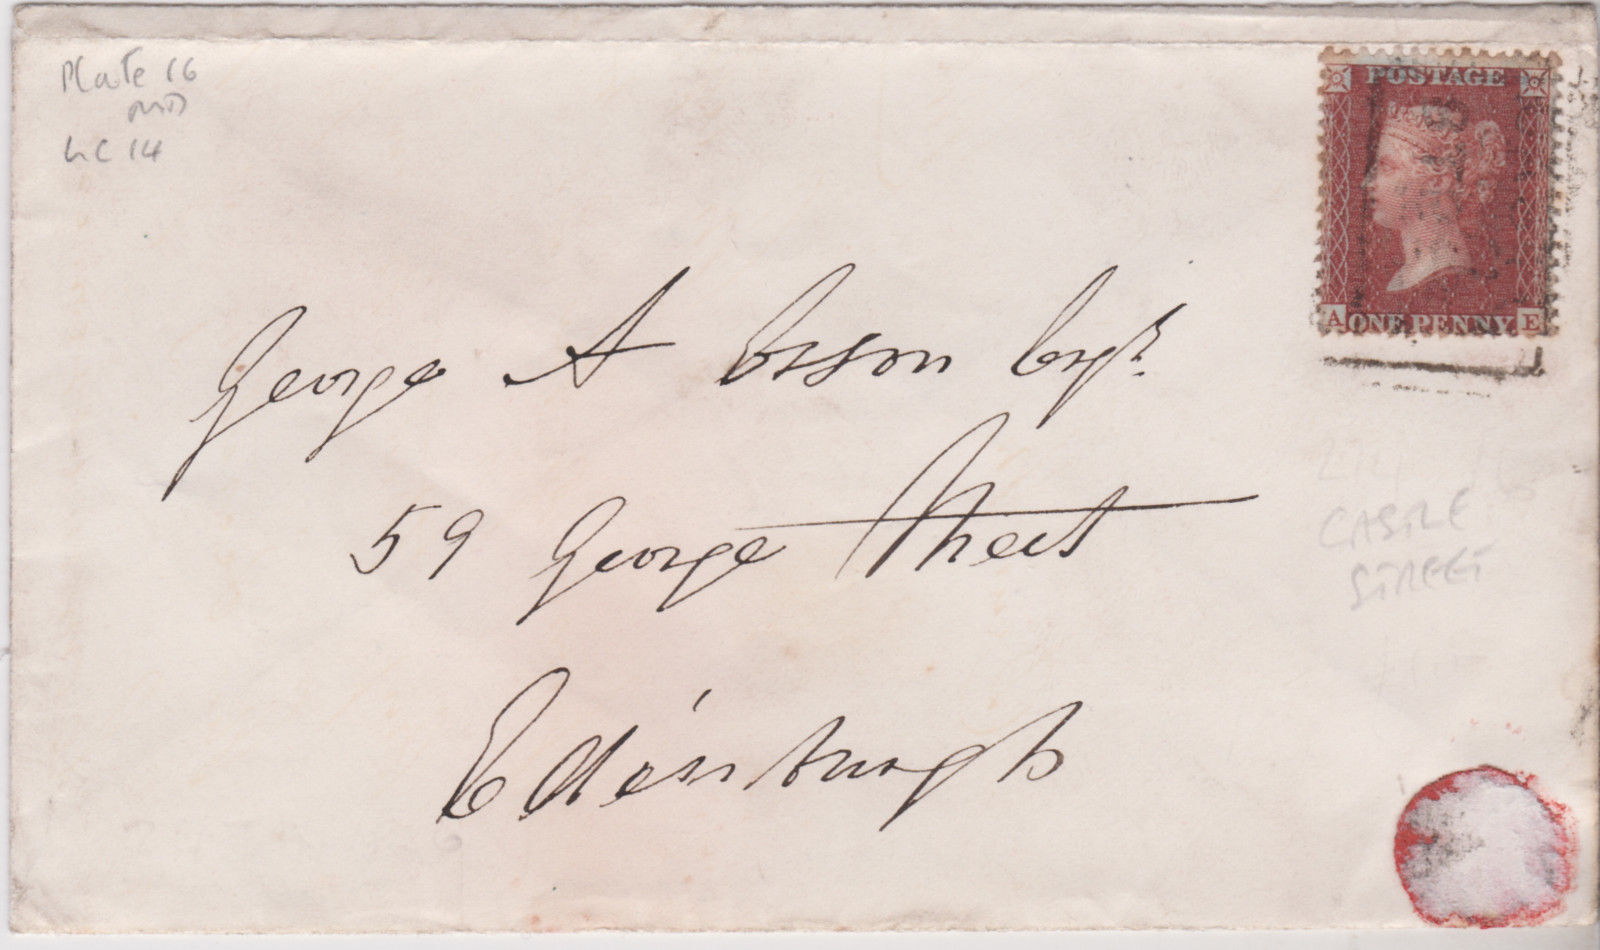 Plate 16
LC 14
POSTAGE
A ONE PENNY. E
George A Esson Esqr.
59 George Street
Edinburgh
CASTLE
STREET